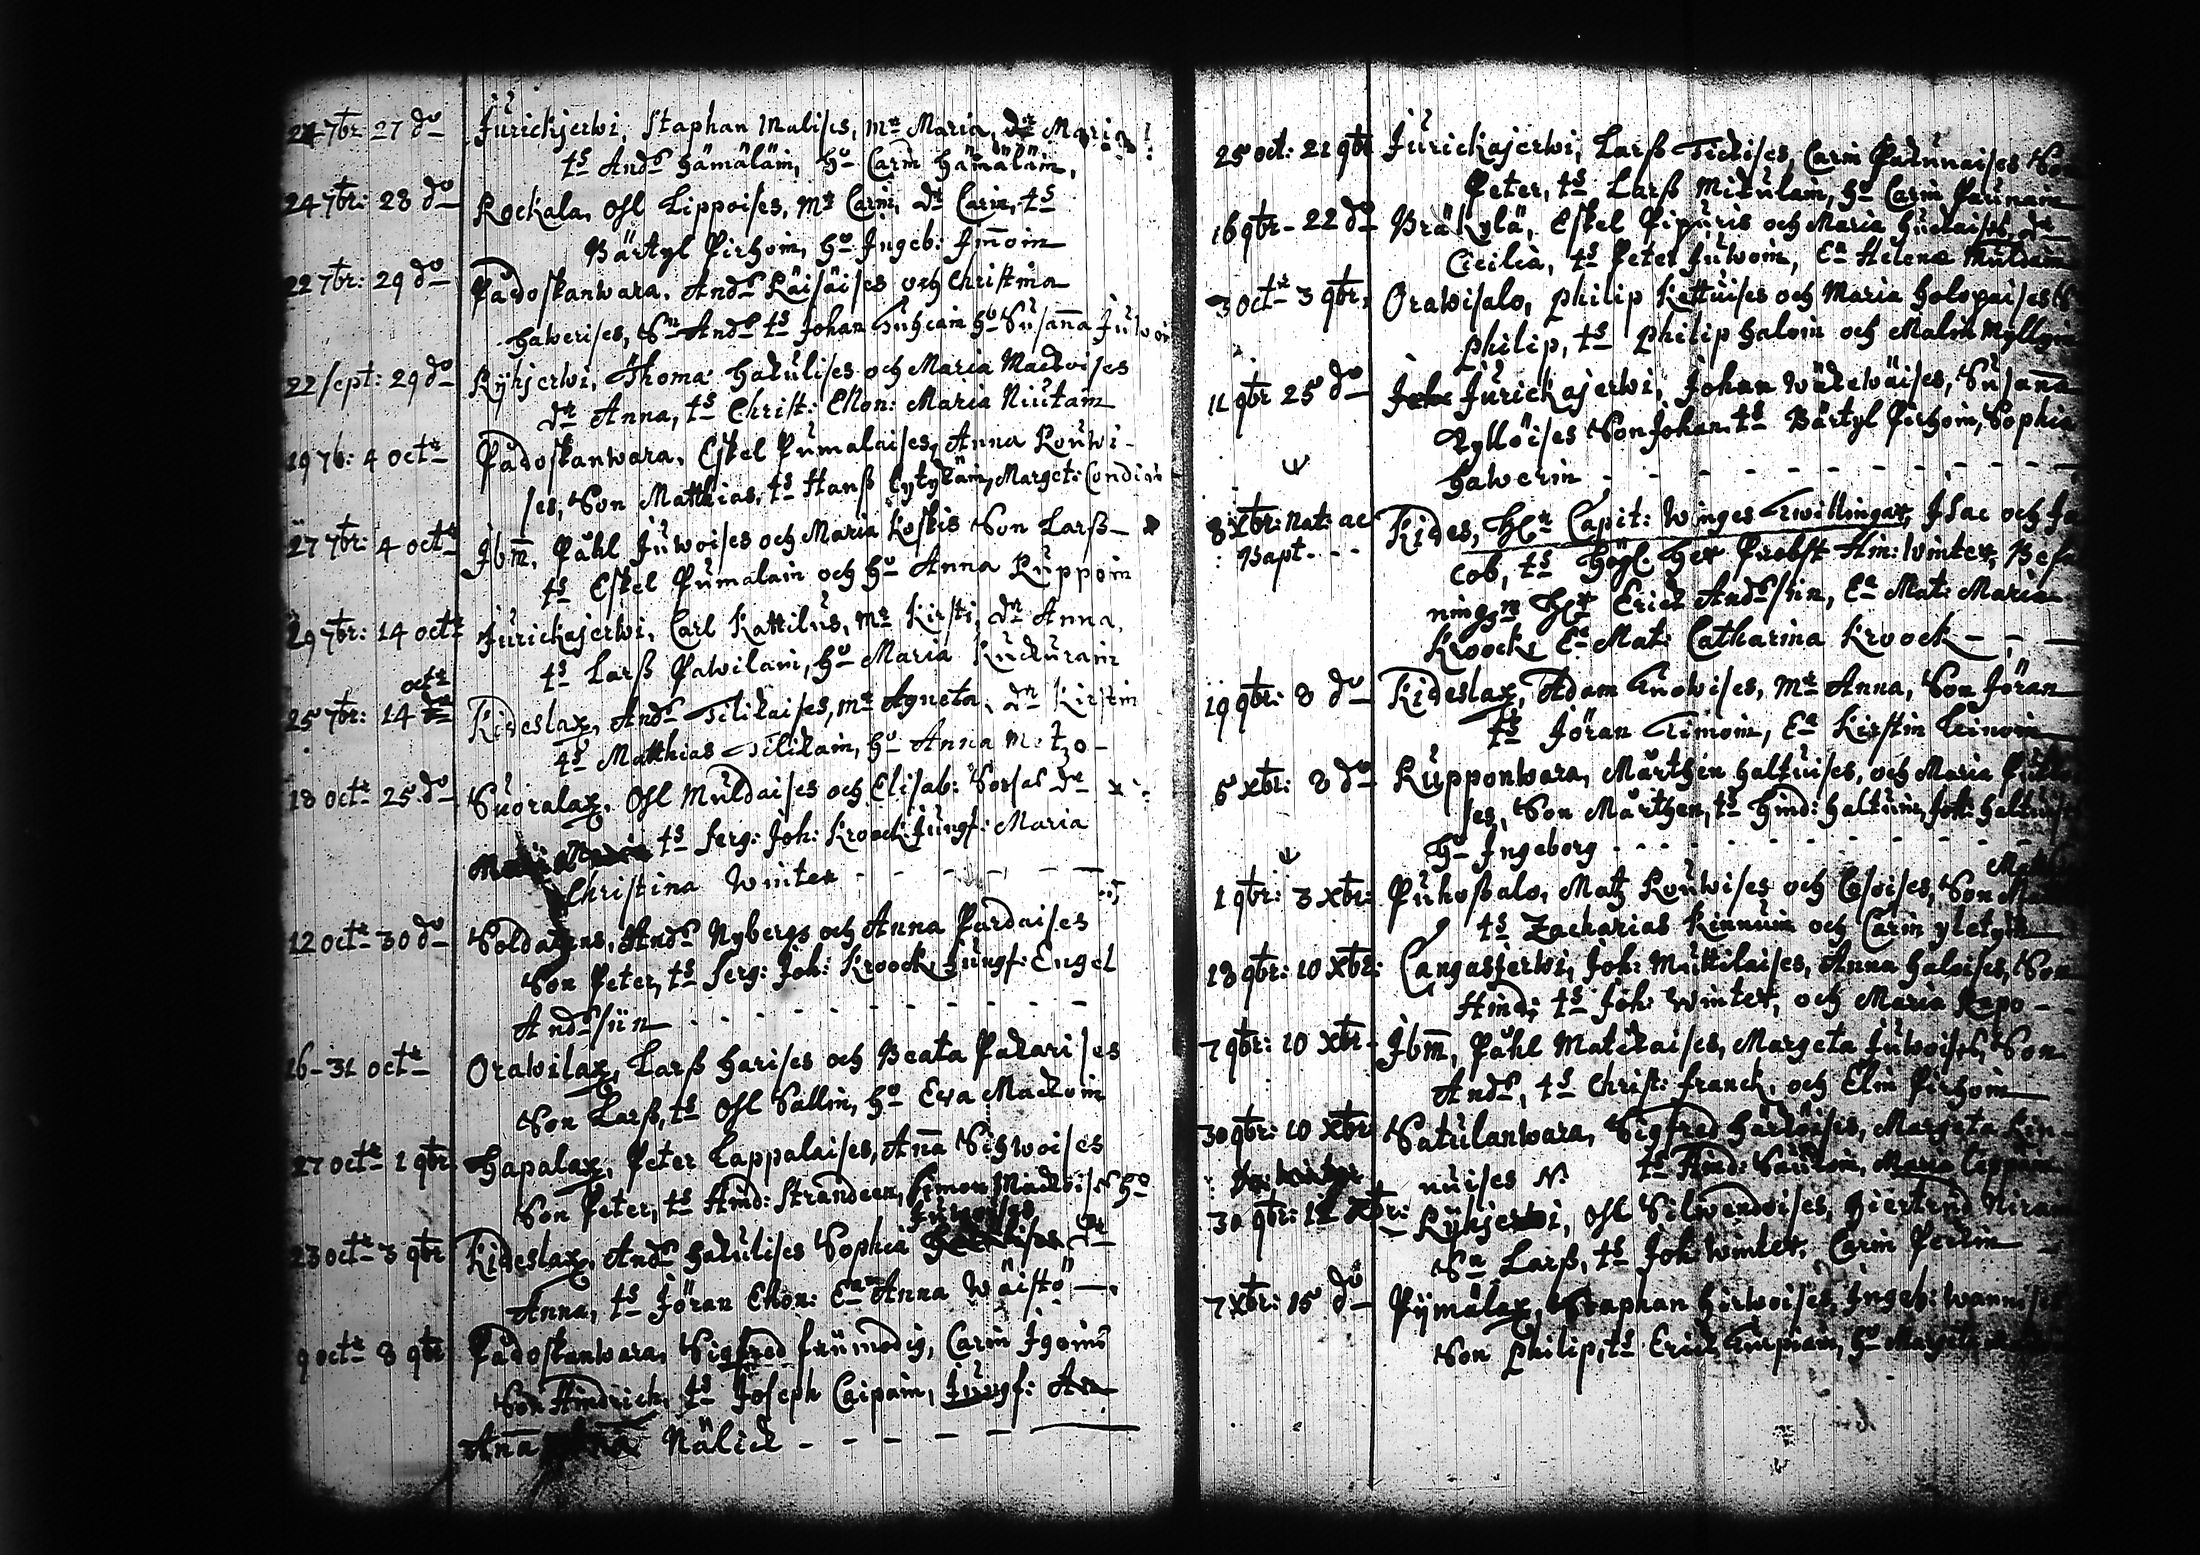 24 7br: 27 do Jurickjerwi, Staphan Malises, mr Maria, dr Maria
ts Ands Hämäläin, ho Carin Hämäläin,
24 7br: 28 do Rockala, Ofl Lippoises, mr Carin, dr Carin, ts
Bärtyl Pirhoin, ho Ingeb: Imoin
22 7br: 29 do Pådoskanwara, Ands Räisäises och Christina
Hawerises, Sn Ands ts Johan Tuhcain ho Susanna Juwoi
22 sept: 29 do Ryhjerwi, Thoma Hakulises och Maria Mackoises
dr Anna, ts Christ: Ekon: Maria Niutain
19 7b: 4 octr Pådoskanwara, Eskel Pumalaises, Anna Rouwi-
ses, Son Matthias, ts Hanß Cytykäin, Marget: Condiai
27 7br: 4 octr Jbm, Påhl Juwoises och Maria Koskis Son Larß
ts Eskel Pumalain och ho Anna Ruppoin
29 7br: 14 octr Jurickajerwi, Carl Kattilus, mr Kirsti, dr Anna,
ts Larß Pawilain, ho Maria Kuckurain
octr
25 7br: 14 Kideslax, Ands Tilikaises, mr Agneta, dr Kirstin
ts Matthias Tilikain, ho Anna Motzo-
18 octr 25 do Suoralax, Ofl Muldaises och Elisab: Sorsas dr
ts Serg: Joh: Kroock Jungf: Maria
Christina Winter
12 octr 30 do Soldatens, Ands Nybergs och Anna Pardaises
Son Peter, ts Serg: Joh: Kroock, Jungf: Engel
Andssiin
16-31 octr Orawilax, Larß Harises och Beata Pakarises
Son Larß, ts Ofl Sallin, ho Eva Mackoin
27 octr 1 9br Hapalax, Peter Lappalaises, Anna Sihwoises
Son Peter, ts Hind: Strandeen, Simon Mackoises ho
Juwoises
23 octr 3 9br Kideslax, Ands Hakulises Sophia dr
Anna, ts Jöran Ekon: Ea Anna Wäistö
9 octr 8 9br Pådoskanwara, Sigfred frumodig, Carin Jgoins
Son Hindrich, ts Joseph Caipain, Jungf: An
Anna Nälick
25 oct: 21 9br Jurickajerwi, Larß Tickises, Carin Pakunaises Son
Peter, ts Larß Mikulain, ho Carin Paunain
16 9br 22 do Bräkylä, Eskel Pipuris och Maria Huckaises, dr
Cicilia, ts Peter Juwoin, Ea Helena Muldain
3 octr 3 9br, Orawisalo, Philip Kettuises och Maria Holopaises S
Philip, ts Philip Haloin och Malin Myllyin
11 9br 25 do Jurickajerwi, Johan Wäkewäises, Susanna
Kyllöises Son Johan, ts Bärtyl Pirhoin, Sophia
Hawerin
8 Xbr: nat: ac Kides, Hr Capit: Winges Twillingar, Isac och Ja
Bapt. cob, ts Högl. Her Probst Hin: Winter, Besa
ningsm Hr Erick Andssiin, Ea Mat: Maria
Kroock, Ea Mat: Catharina Kroock
19 9br: 8 do Kideslax, Adam Tuowises, mr Anna, Son Jöran
ts Jöran Timoin, Ea Kirstin Leinoin
5 xbr: 8 do Rupponwara, Mårthen Haltuises, och Maria
ses, Son Mårthen, ts Hind: Haltuin, Joh: Haltuises
ho Ingeborg
1 9br: 3 xbr: Puhoßalo, Matz Rouwises och Cosoises, Son
ts Zacharias Kinnuin och Carin yletyin
18 9br: 10 Xbr: Cangasjerwi, Joh: Muttilaises, Anna Haloises, Son
Hind: ts Joh: Winter, och Maria Repo
7 9br: 10 Xbr Jbm, Påhl Matckaises, Margeta Juwoises, Son
Ands, ts Christ: franck, och Elin Pirhoin
30 9br: 10 Xbr Satulanwara, Sigfred Härköises, Margeta Kin-
nuises N: ts Hind: Sairoin, Maria Leppäin
30 9br: Xbr: Ryhjerwi, Ofl Silwendoises, Giertrud Nirain
Sn Larß, ts Joh: Winter, Carin Peckin
7 xbr: 15 do Pijmälax, Staphan Hirwoises, Ingeb: Wannises
Son Philip, ts Erick Turpiain, ho Margeta